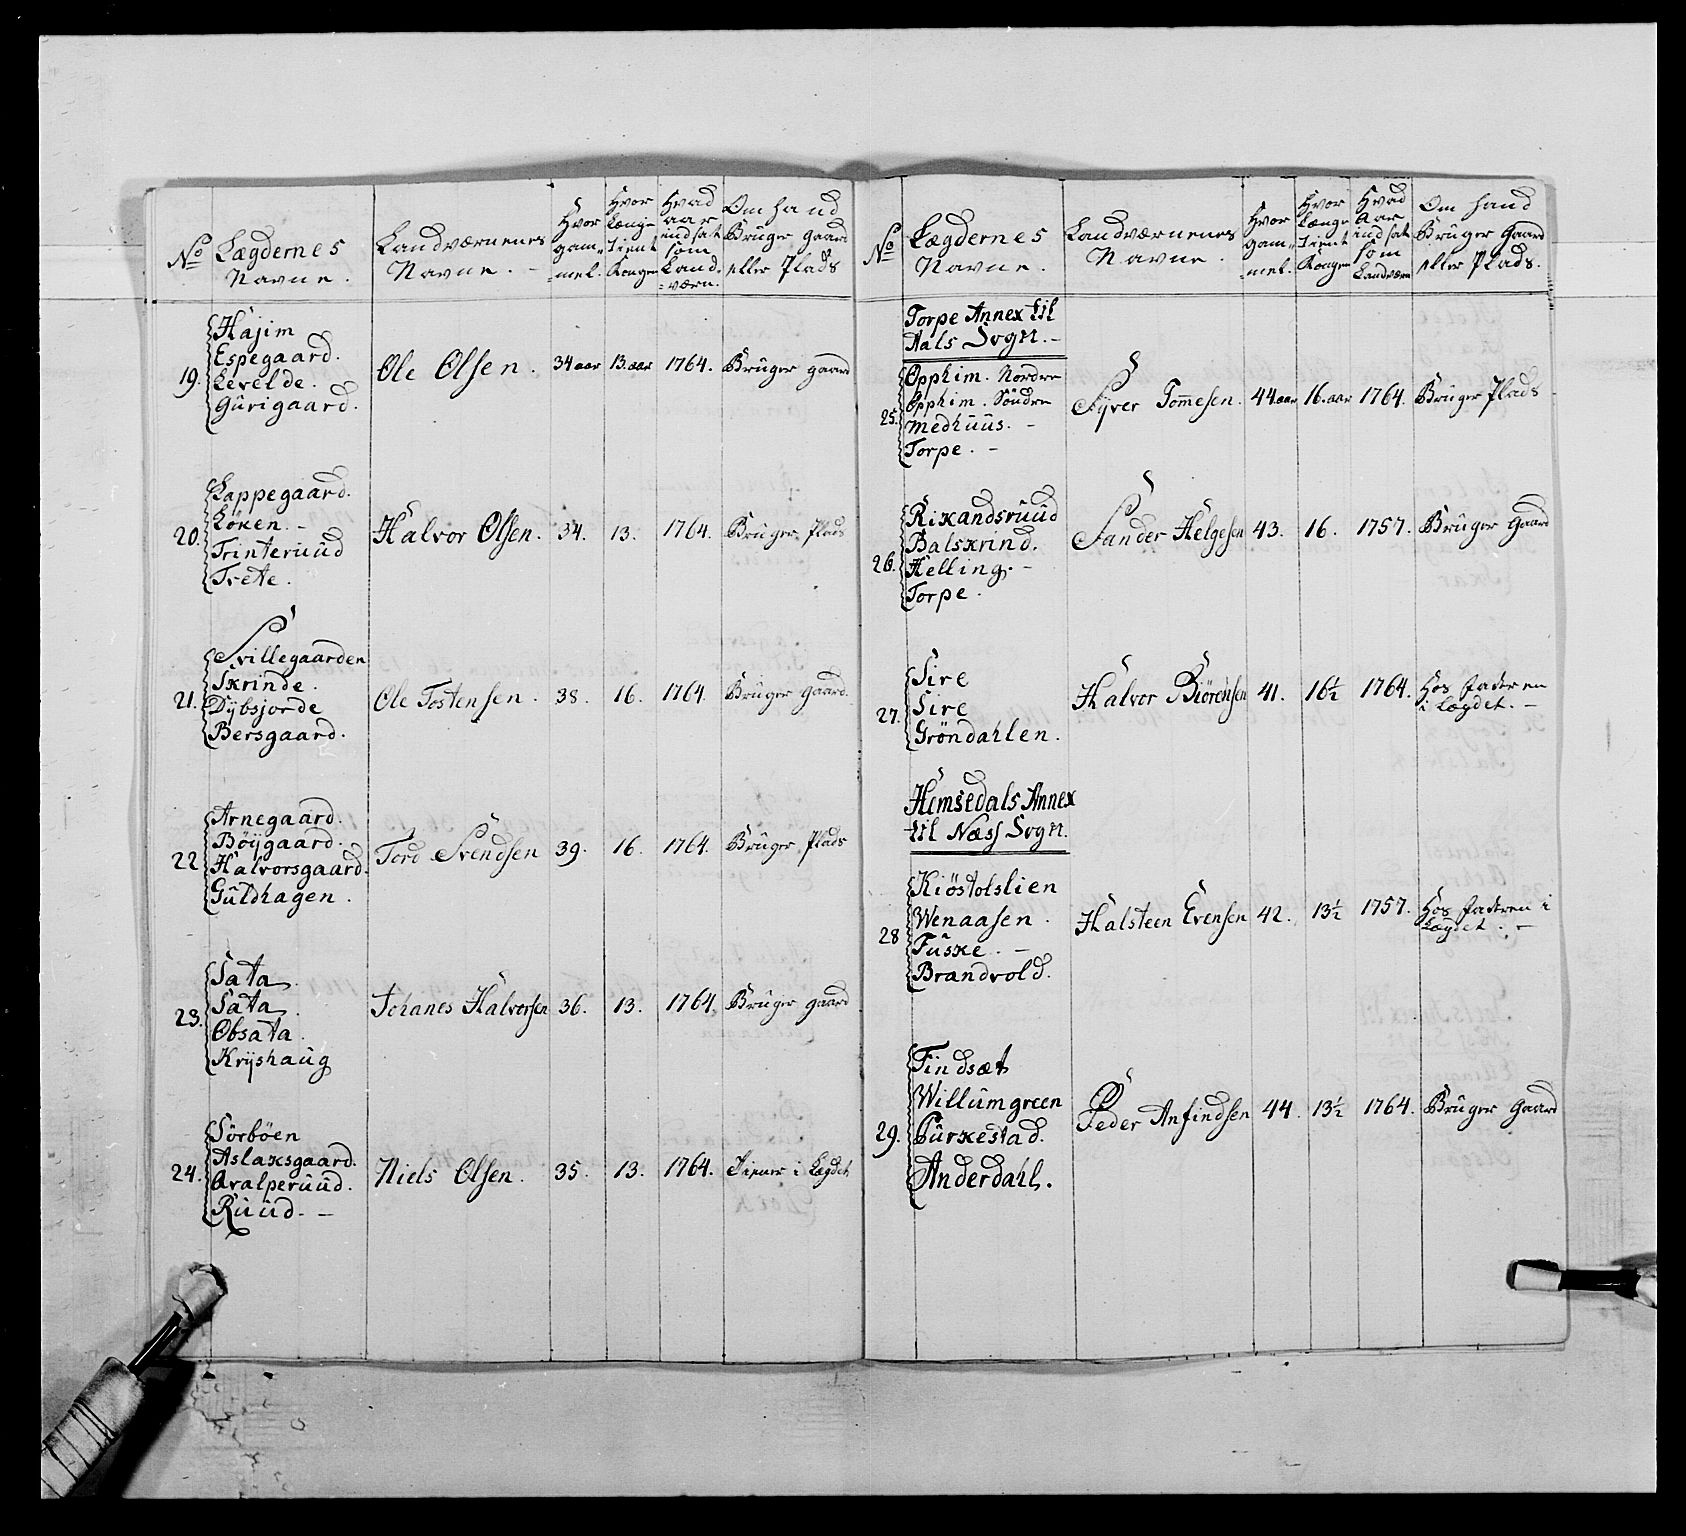 No
Lægdernes
Navne.
Landværnenes
Navne. -
Hvor
gam-
mel.
Hvor
længe
Tient
Kongen
Hvad
aar
indsat
som
Land-
værn.
Om hand
Bruger gaard
eller Plads
19.
Hajim
Espegaard.
Levelde.
Gurigaard.
Ole Olsen. 34 aar 13. aar 1764. Bruger gaard
20.
Lappegaard.
Löken. -
Trinteruud
Tvete.
Halvor Olsen. 34. 13. 1764. Bruger Plads
21.
Svillegaarden
Skrinde.
Dÿbsjorde
Bersgaard.
Ole Tostensen. 38. 16. 1764. Bruger gaard.
22
Arnegaard.
Böÿgaard.
Halvorsgaard.
Guldhagen.
Tord Svendsen 39. 16. 1764. Bruger Plads
23.
Sata.
Sata.
Obsata.
Krÿshaug
Johanes Halvorsen 36. 13. 1764. Bruger gaard
24.
Sörböen
Aslaxsgaard.
Aralperuud.
Ruud. -
Niels Olsen. 35. 13. 1764. Tiener i Lægdet
No
Lægdernes
Navne.
Landværnenes
Navne.
Hvor
gam-
mel.
Hvor
længe
Tient
Kongen
Hvad
Aar
indsat
som
Landværn
Om hand
Bruger Gaard
eller Plads.
Torpe Annex til
Aals Sogn. -
25.
Opphim. Nordre
Opphim. Söndre
Medhuus. -
Torpe. -
Syver Tommesen. 44. aar 16. aar 1764. Bruger Plads
26.
Rixandsruud
Balskrind.
Helling. -
Torpe.
Sander Helgesen 43. 16. 1757. Bruger Gaard
27.
Sire
Sire
Gröndahlen.
Halvor Biörensen 41. 16½ 1764. Hos Faderen
i Lægdet. -
Hemsedals Annex
til Næss Sogn.
28
Kiöstolslien
Wenaasen.
Fuske. -
Brandvold.
Halsteen Evensen 42. 13½ 1757. Hos Faderen i
Lægdet. -
29.
Findsæt
Willumgreen
Purkestad.
Anderdahl.
Peder Anfindsen 44. 13½ 1764. Bruger Gaard